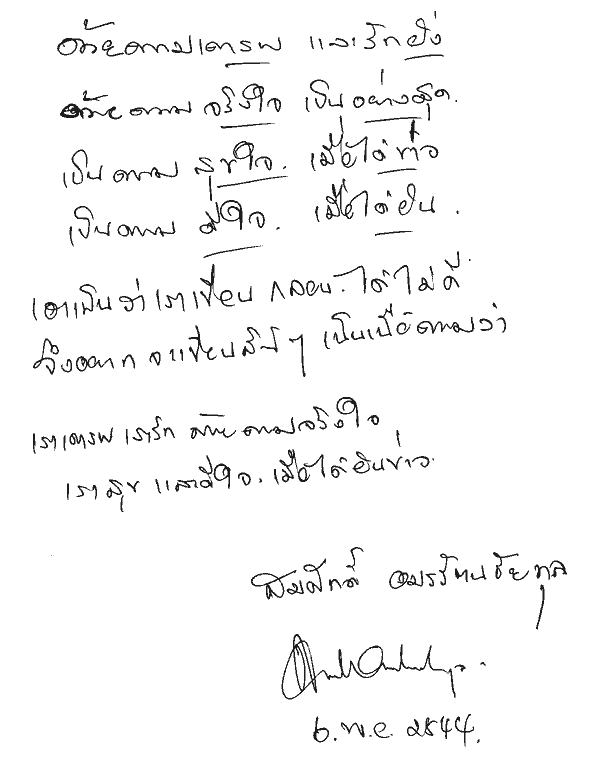 ด้วยความเคารพ และรักยิ่ง
ด้วยความ จริงใจ เป็นอย่างสุด.
เป็นความ สุขใจ. เมื่อได้ข่าว
เป็นความ ดีใจ. เมื่อได้ยิน.
เอาเป็นว่า เราเขียน กลอน. ได้ไม่ดี
จึงอยาก จะเขียนสั้นๆ เป็นเนื้อความว่า
เราเคารพ เรารัก ด้วยความจริงใจ
เราสุข และดีใจ. เมื่อได้ยินข่าว.
สมศักดิ์ อมรรัตนชัยกุล
๖. พ.ย. ๒๕๔๔.